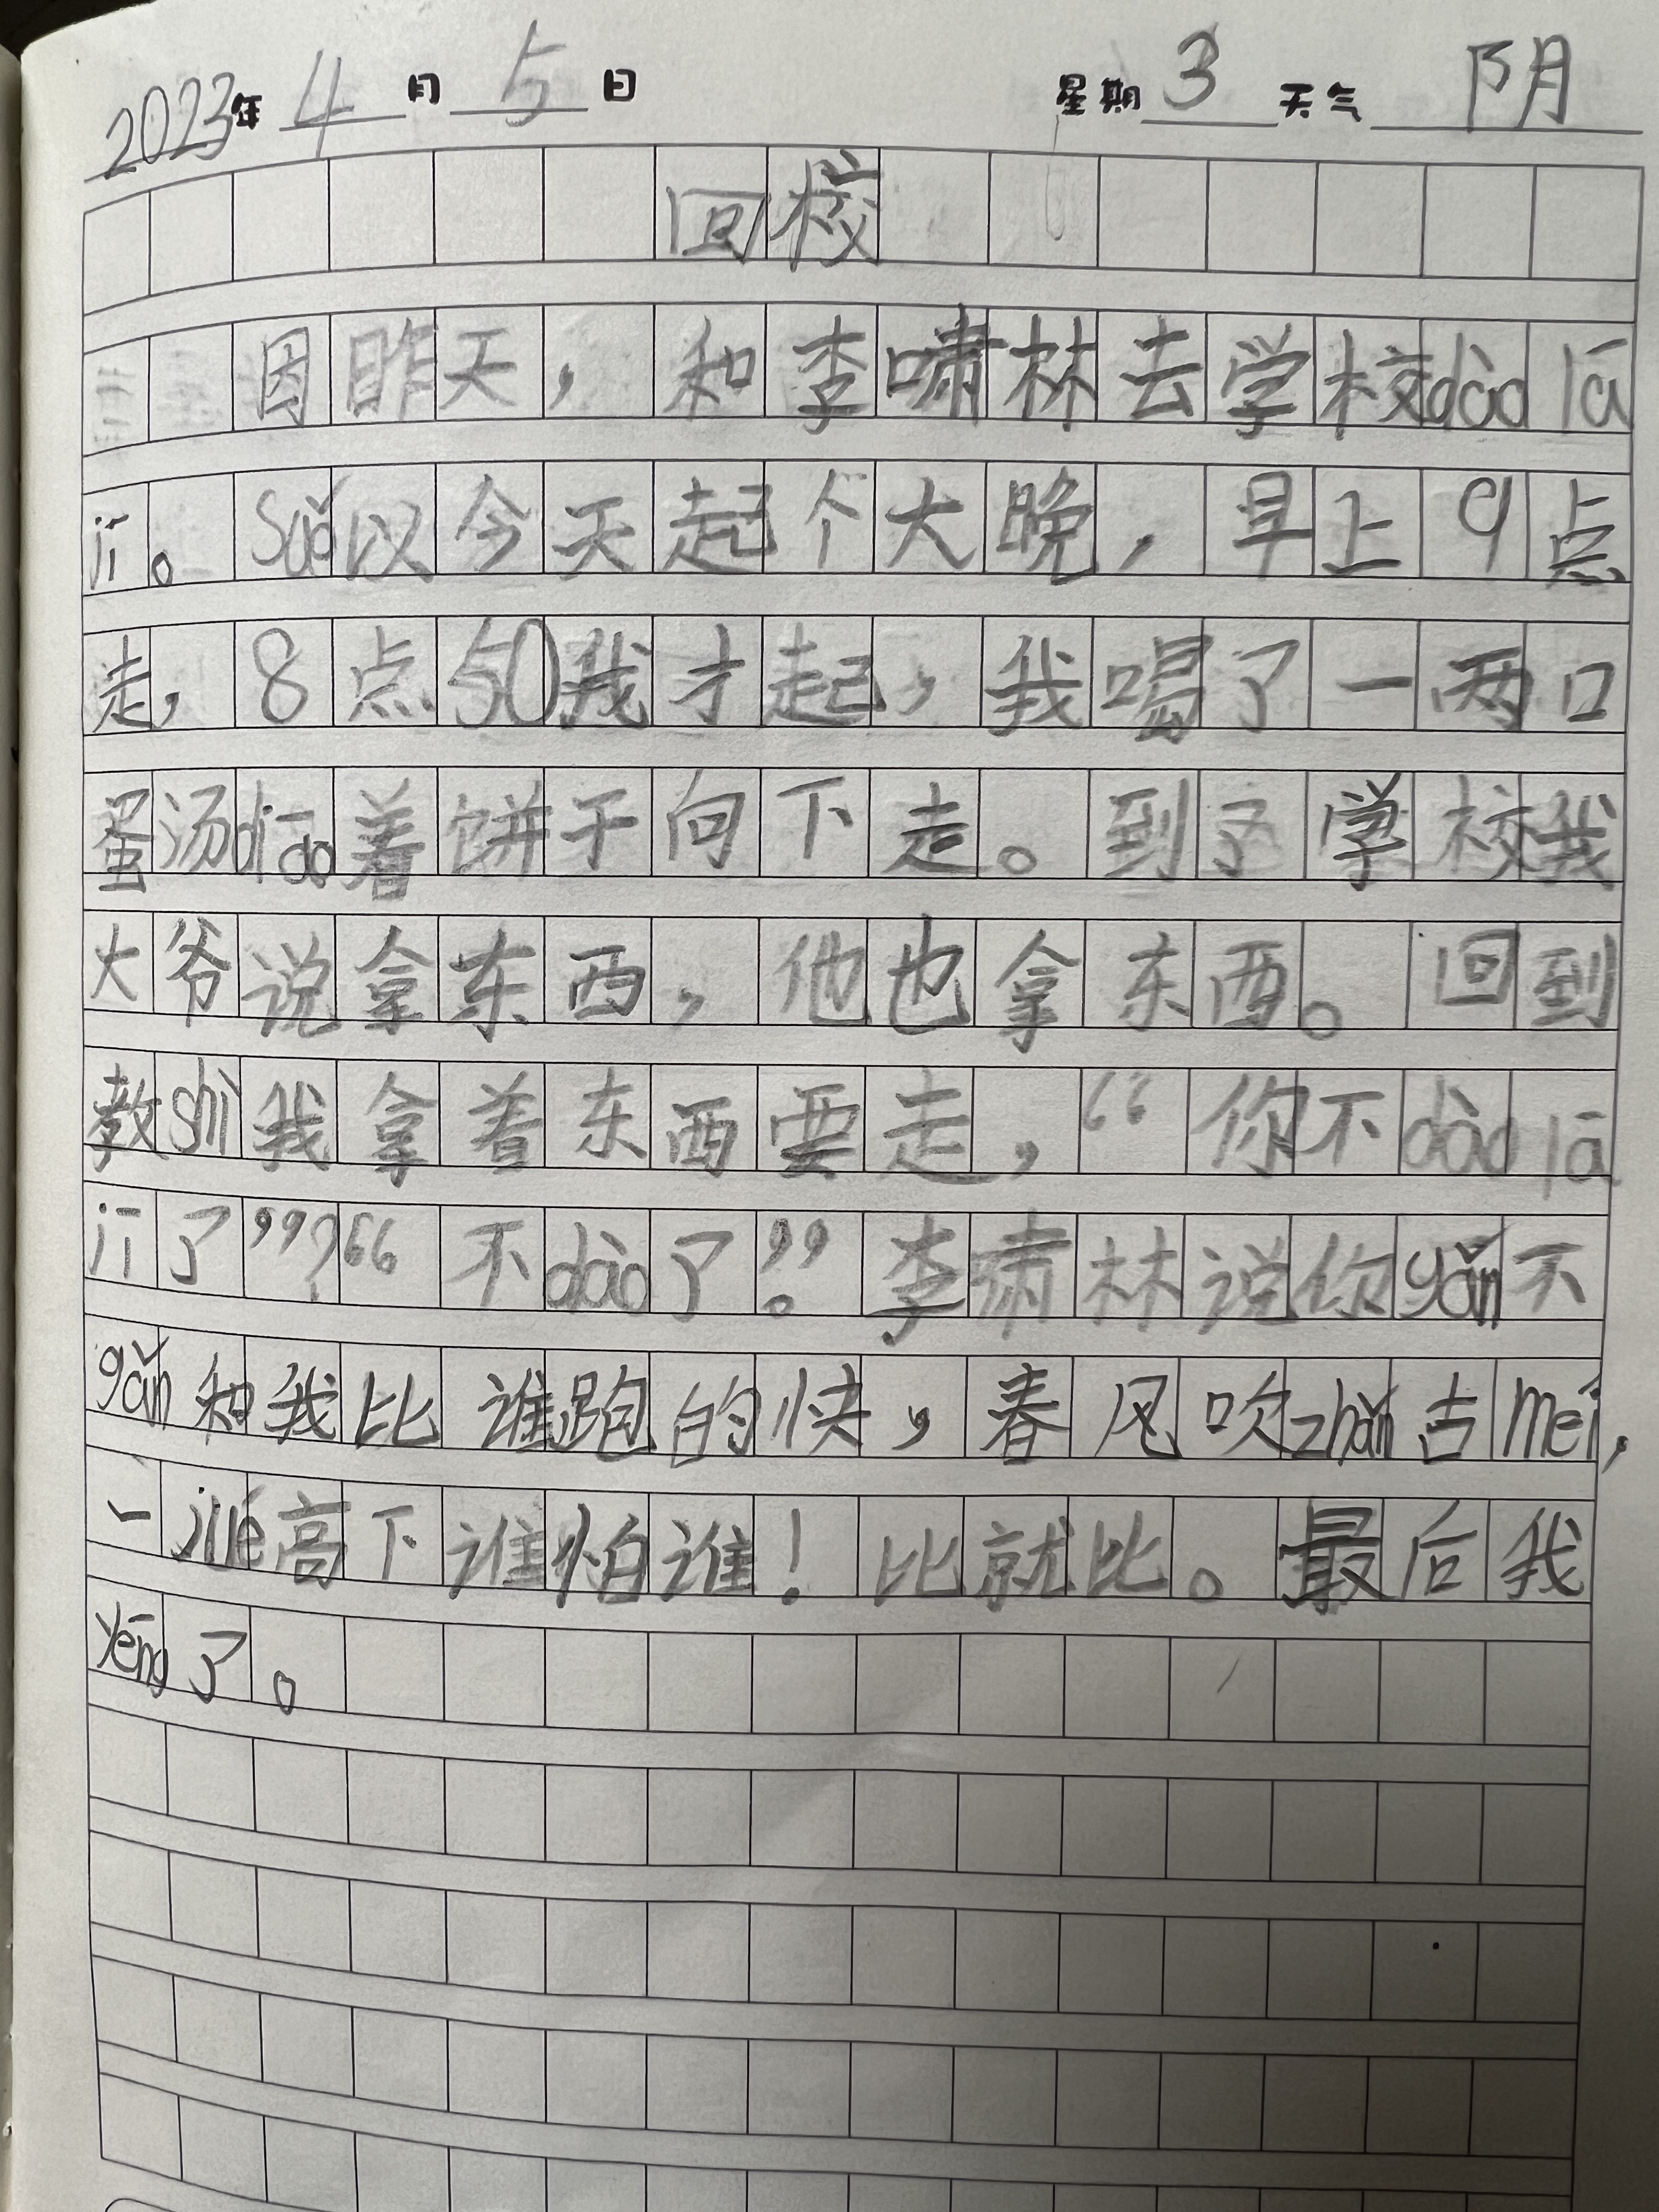 2023年 4 月 5 日 星期 3 天气 阴
回校
因昨天，和李啸林去学校dào lā
jī。suǒ以今天起个大晚，早上9点
走，8点50我才起，我喝了一两口
蛋汤diāo着饼干向下走。到了学校我
大爷说拿东西，他也拿东西。回到
教shì我拿着东西要走，“你不dào lā
jī了”？“不dào了”。李啸林说你gǎn不
gǎn和我比谁跑的快，春风吹zhàn古měi，
一jué高下谁怕谁！比就比。最后我
yēng了。